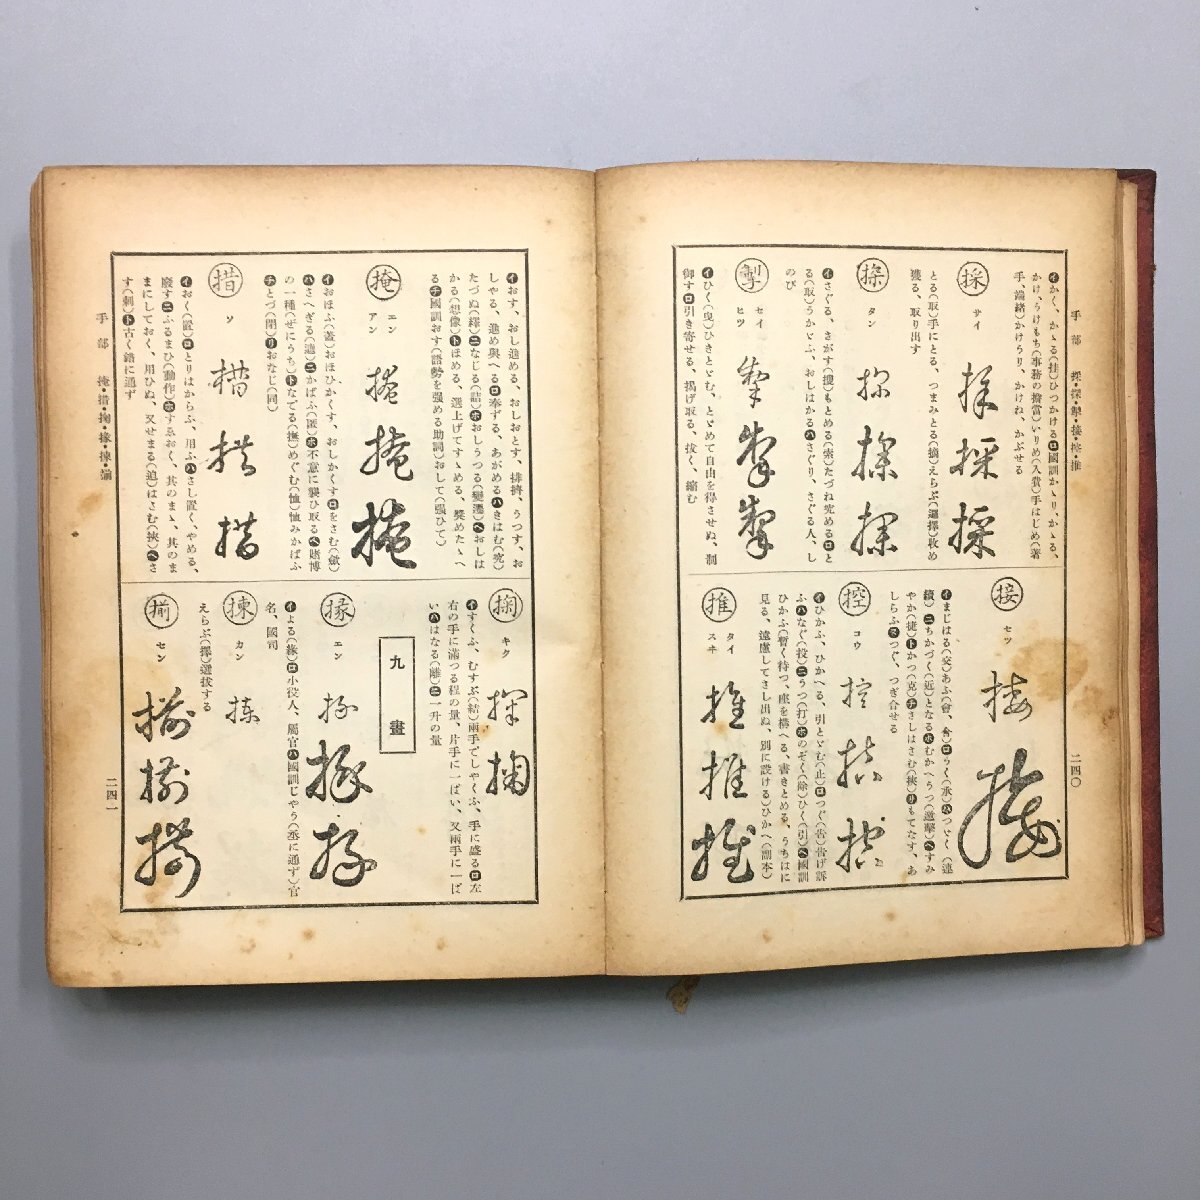 手部 採・探・掣・接・控・推
二四〇
採
サイ
とる(取)手にとる、つまみとる(摘)えらぶ(選擇)收め
獲る、取り出す
探
タン
イさぐる、さがす(搜)もとめる(索)たづね究めるロと
る(取)うかゞふ、おしはかるハさぐり、さぐる人、し
のび
掣
セイ
ヒツ
イひく(曳)ひきとゞむ、とゞめて自由を得させぬ、制
御すロ引き寄せる、揭げ取る、拔く、縮む
接
セツ
イまじはる(交)あふ(會、合)ロうく(承)ハつゞく(連
續)ニちかづく(近)となるホむかへうつ(邀擊)ヘすみ
やか(捷)トかつ(克)チさしはさむ(挾)リもてなす、あ
しらふヌつぐ、つぎ合せる
控
コウ
イひかふ、ひかへる、引とゞむ(止)ロつぐ(告)告げ訴
ふハなぐ(投)ニうつ(打)ホのぞく(除)ひく(引)ヘ國訓
ひかふ(暫く待つ、座を構へる、書きとめる、うちはに
見る、遠慮してさし出ぬ、別に設ける)ひかへ(副本)
推
タイ
スヰ
イおす、おし進める、おしおとす、排擠、うつす、お
しやる、進め與へるロ奉ずる、あがめるハきはむ(究)
たづぬ(繹)ニなじる(詰)ホおしうつる(變遷)ヘおしは
かる(想像)トほめる、選上げてすゝめる、奬めたゝへ
るチ國訓おす(語勢を強める助詞)おして(強ひて)
掩
エン
アン
イおほふ(蓋)おほひかくす、おしかくすロをさむ(斂)
ハさへぎる(遮)ニかばふ(匿)ホ不意に襲ひ取るヘ賭博
の一種(ぜにうち)トなでる(撫)めぐむ(恤)恤みかばふ
チとづ(閉)リおなじ(同)
措
ソ
イおく(置)ロとりはからふ、用ふハさし置く、やめる、
廢すニふるまひ(動作)ホすゑおく、其のまゝ、其のま
まにしておく、用ひぬ、又せまる(追)はさむ(挾)ヘさ
す(刺)ト古く錯に通ず
掬
キク
イすくふ、むすぶ(結)兩手でしやくふ、手に盛るロ左
右の手に滿つる程の量、片手に一ぱい、又兩手に一ぱ
いハはなる(離)ニ一升の量
九畫
掾
エン
イよる(緣)ロ小役人、屬官ハ國訓じやう(丞に通ず)官
名、國司
揀
カン
えらぶ(擇)選拔する
揃
セン
手部 掩・措・掬・掾・揀・揃
二四一